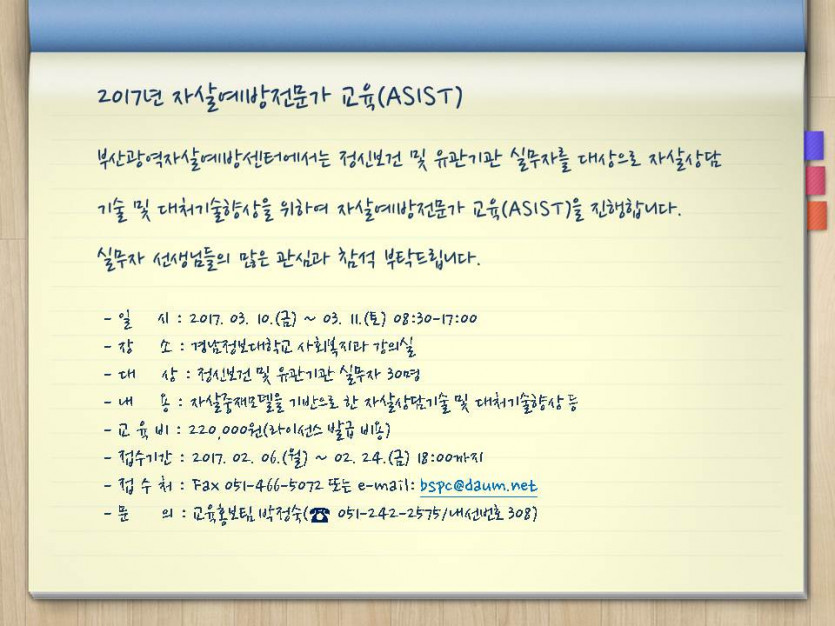 2017년 자살예방전문가 교육(ASIST)
부산광역자살예방센터에서는 정신보건 및 유관기관 실무자를 대상으로 자살상담
기술 및 대처기술향상을 위하여 자살예방전문가 교육(ASIST)을 진행합니다.
실무자 선생님들의 많은 관심과 참석 부탁드립니다.
- 일 시 : 2017. 03. 10.(금) ~ 03. 11.(토) 08:30-17:00
- 장 소 : 경남정보대학교 사회복지과 강의실
- 대 상 : 정신보건 및 유관기관 실무자 30명
- 내 용 : 자살중재모델을 기반으로 한 자살상담기술 및 대처기술향상 등
- 교 육 비 : 220,000원(라이선스 발급 비용)
- 접수기간 : 2017. 02. 06.(월) ~ 02. 24.(금) 18:00까지
- 접 수 처 : Fax 051-466-5072 또는 e-mail: bspc@daum.net
- 문 의 : 교육홍보팀 박정숙(☎ 051-242-2575/내선번호 308)